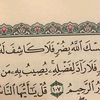 سَسْكَ ٱللَّهُ بِضُرٍّ فَلَا كَاشِفَ لَهُ
فَلَا رَآدَّ لِفَضْلِهِۦ يُصِيبُ بِهِۦ مَن
ٱلرَّحِيمُ ١٠٧ قُلْ يَٰٓأَيُّهَا